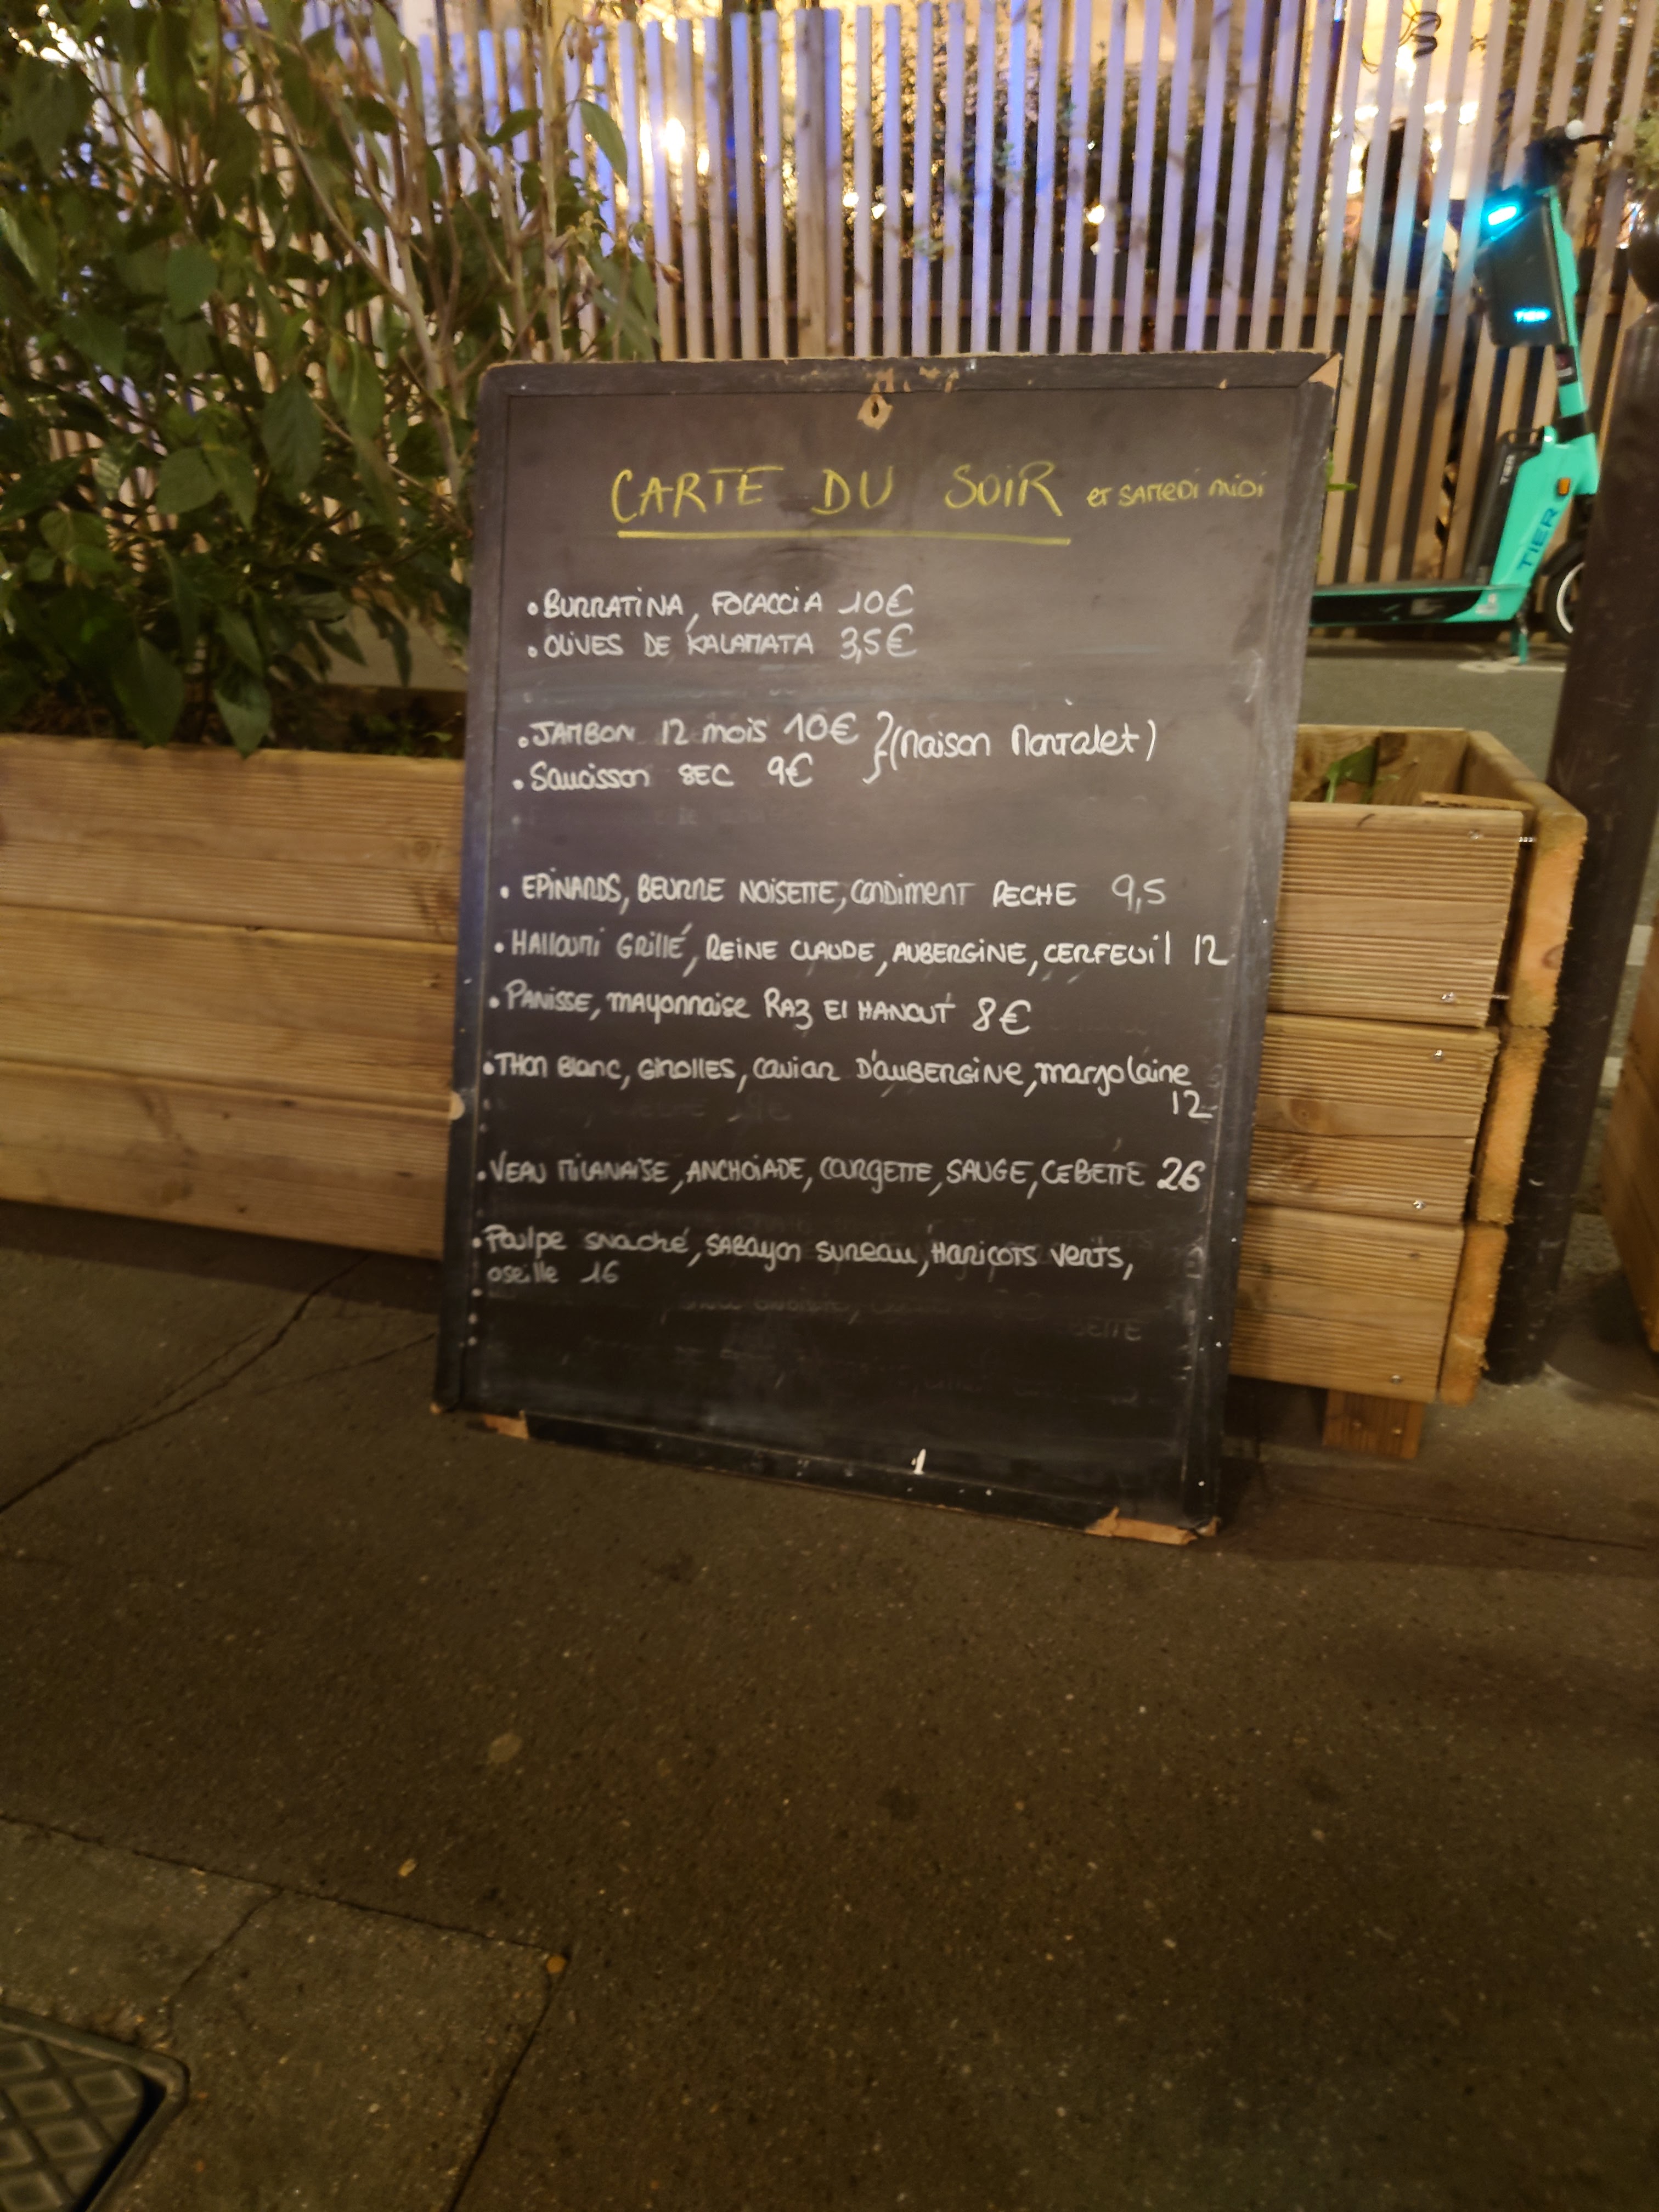 CARTE DU SOIR et SAMEDI MIDI
• BURRATINA, FOCACCIA 10€
• OLIVES DE KALAMATA 3,5€
• JAMBON 12 mois 10€ } (Maison Montalet)
• Saucisson SEC 9€
• EPINARDS, BEURRE NOISETTE, CONDIMENT PECHE 9,5
• HALLOUMI GRILLÉ, REINE CLAUDE, AUBERGINE, CERFEUIL 12
• PANISSE, mayonnaise RAZ EL HANOUT 8€
• THON Blanc, GIROLLES, caviar D'AUBERGINE, marjolaine
12
• VEAU MILANAISE, ANCHOIADE, COURGETTE, SAUGE, CEBETTE 26
• Poulpe snacké, SABAyon sureau, HARICOTS VERTS,
oseille 16
TIER
TIER
TIER